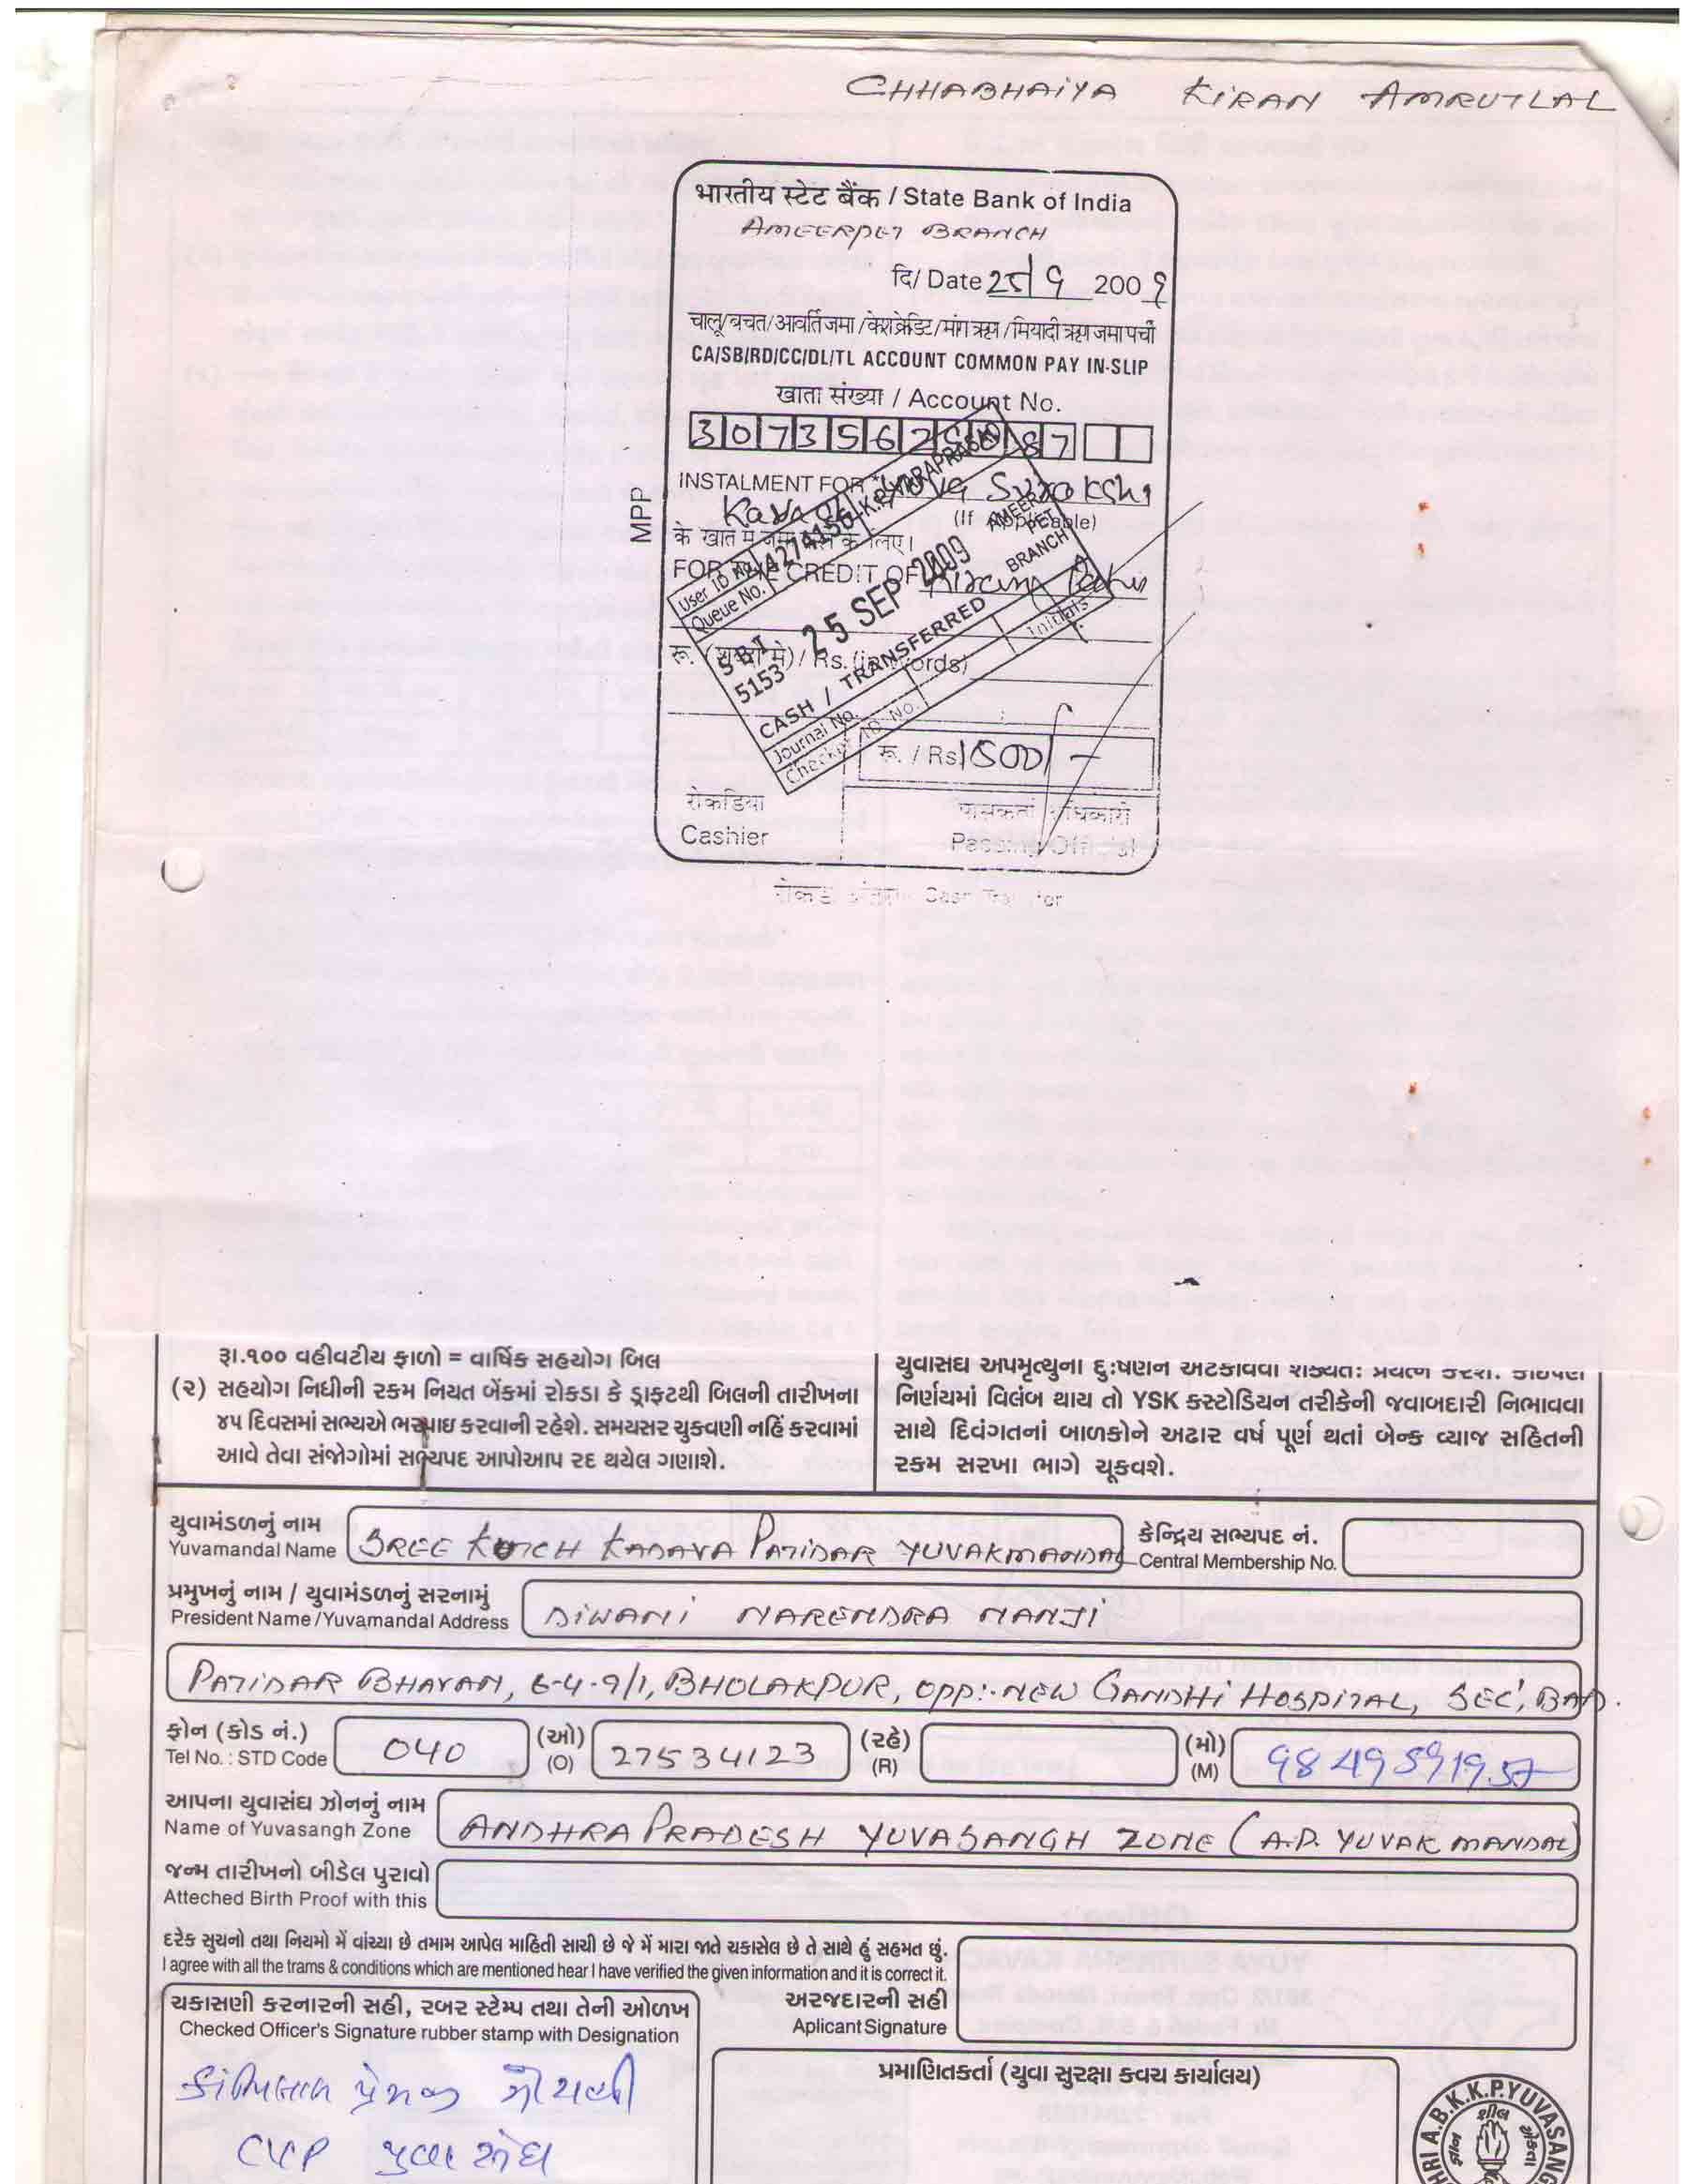 CHHABHAIYA KIRAN AMRUTLAL
भारतीय स्टेट बैंक / State Bank of India
AMEERPET BRANCH
दि/ Date 25/9 2009
चालू/बचत/आवर्ति जमा/केश क्रेडिट/मांग ऋण/मियादी ऋण जमा पर्ची
CA/SB/RD/CC/DL/TL ACCOUNT COMMON PAY IN-SLIP
खाता संख्या / Account No.
3073562 87
MPP
INSTALMENT FOR Yuva Suraksha
(If Applicable)
के खाते में जमा के लिए।
FOR THE CREDIT OF
User ID No. K.P. VARAPRASAD
Queue No.
SBI 25 SEP 2009 AMEERPET BRANCH
5153
CASH / TRANSFERRED Initials
Journal No.
Checker ID No.
रू. ( में) / Rs. (in words)
रू. / Rs 1500/-
रोकडिया
Cashier
पासकर्ता अधिकारी
Passing Official
રૂા.૧૦૦ વહીવટીય ફાળો = વાર્ષિક સહયોગ બિલ
(૨) સહયોગ નિધીની રકમ નિયત બેંકમાં રોકડા કે ડ્રાફટથી બિલની તારીખના
૪૫ દિવસમાં સભ્યએ ભરપાઇ કરવાની રહેશે. સમયસર ચુકવણી નહિં કરવામાં
આવે તેવા સંજોગોમાં સભ્યપદ આપોઆપ રદ થયેલ ગણાશે.
યુવાસંઘ અપમૃત્યુના દુઃષણને અટકાવવા શક્યતઃ પ્રયત્ન કરશે. કોઇપણ
નિર્ણયમાં વિલંબ થાય તો YSK કસ્ટોડિયન તરીકેની જવાબદારી નિભાવવા
સાથે દિવંગતનાં બાળકોને અઢાર વર્ષ પૂર્ણ થતાં બેન્ક વ્યાજ સહિતની
રકમ સરખા ભાગે ચૂકવશે.
યુવામંડળનું નામ
Yuvamandal Name SREE KUTCH KADAVA PATIDAR YUVAKMANDAL
કેન્દ્રિય સભ્યપદ નં.
Central Membership No.
પ્રમુખનું નામ / યુવામંડળનું સરનામું
President Name /Yuvamandal Address DIWANI NARENDRA NANJI
PATIDAR BHAVAN, 6-4-9/1, BHOLAKPUR, OPP:-NEW GANDHI HOSPITAL, SEC'BAD.
ફોન (કોડ નં.) (ઓ) (રહે) (મો)
Tel No. : STD Code 040 (O) 27534123 (R) (M) 9849591957
આપના યુવાસંઘ ઝોનનું નામ
Name of Yuvasangh Zone ANDHRA PRADESH YUVASANGH ZONE (A.P. YUVAK MANDAL)
જન્મ તારીખનો બીડેલ પુરાવો
Atteched Birth Proof with this
દરેક સુચનો તથા નિયમો મેં વાંચ્યા છે તમામ આપેલ માહિતી સાચી છે જે મેં મારા જાતે ચકાસેલ છે તે સાથે હું સહમત છું.
I agree with all the trams & conditions which are mentioned hear I have verified the given information and it is correct it.
ચકાસણી કરનારની સહી, રબર સ્ટેમ્પ તથા તેની ઓળખ
Checked Officer's Signature rubber stamp with Designation
અરજદારની સહી
Aplicant Signature
પ્રમાણિતકર્તા (યુવા સુરક્ષા કવચ કાર્યાલય)
SHRI A.B.K.K.P.YUVASANGH